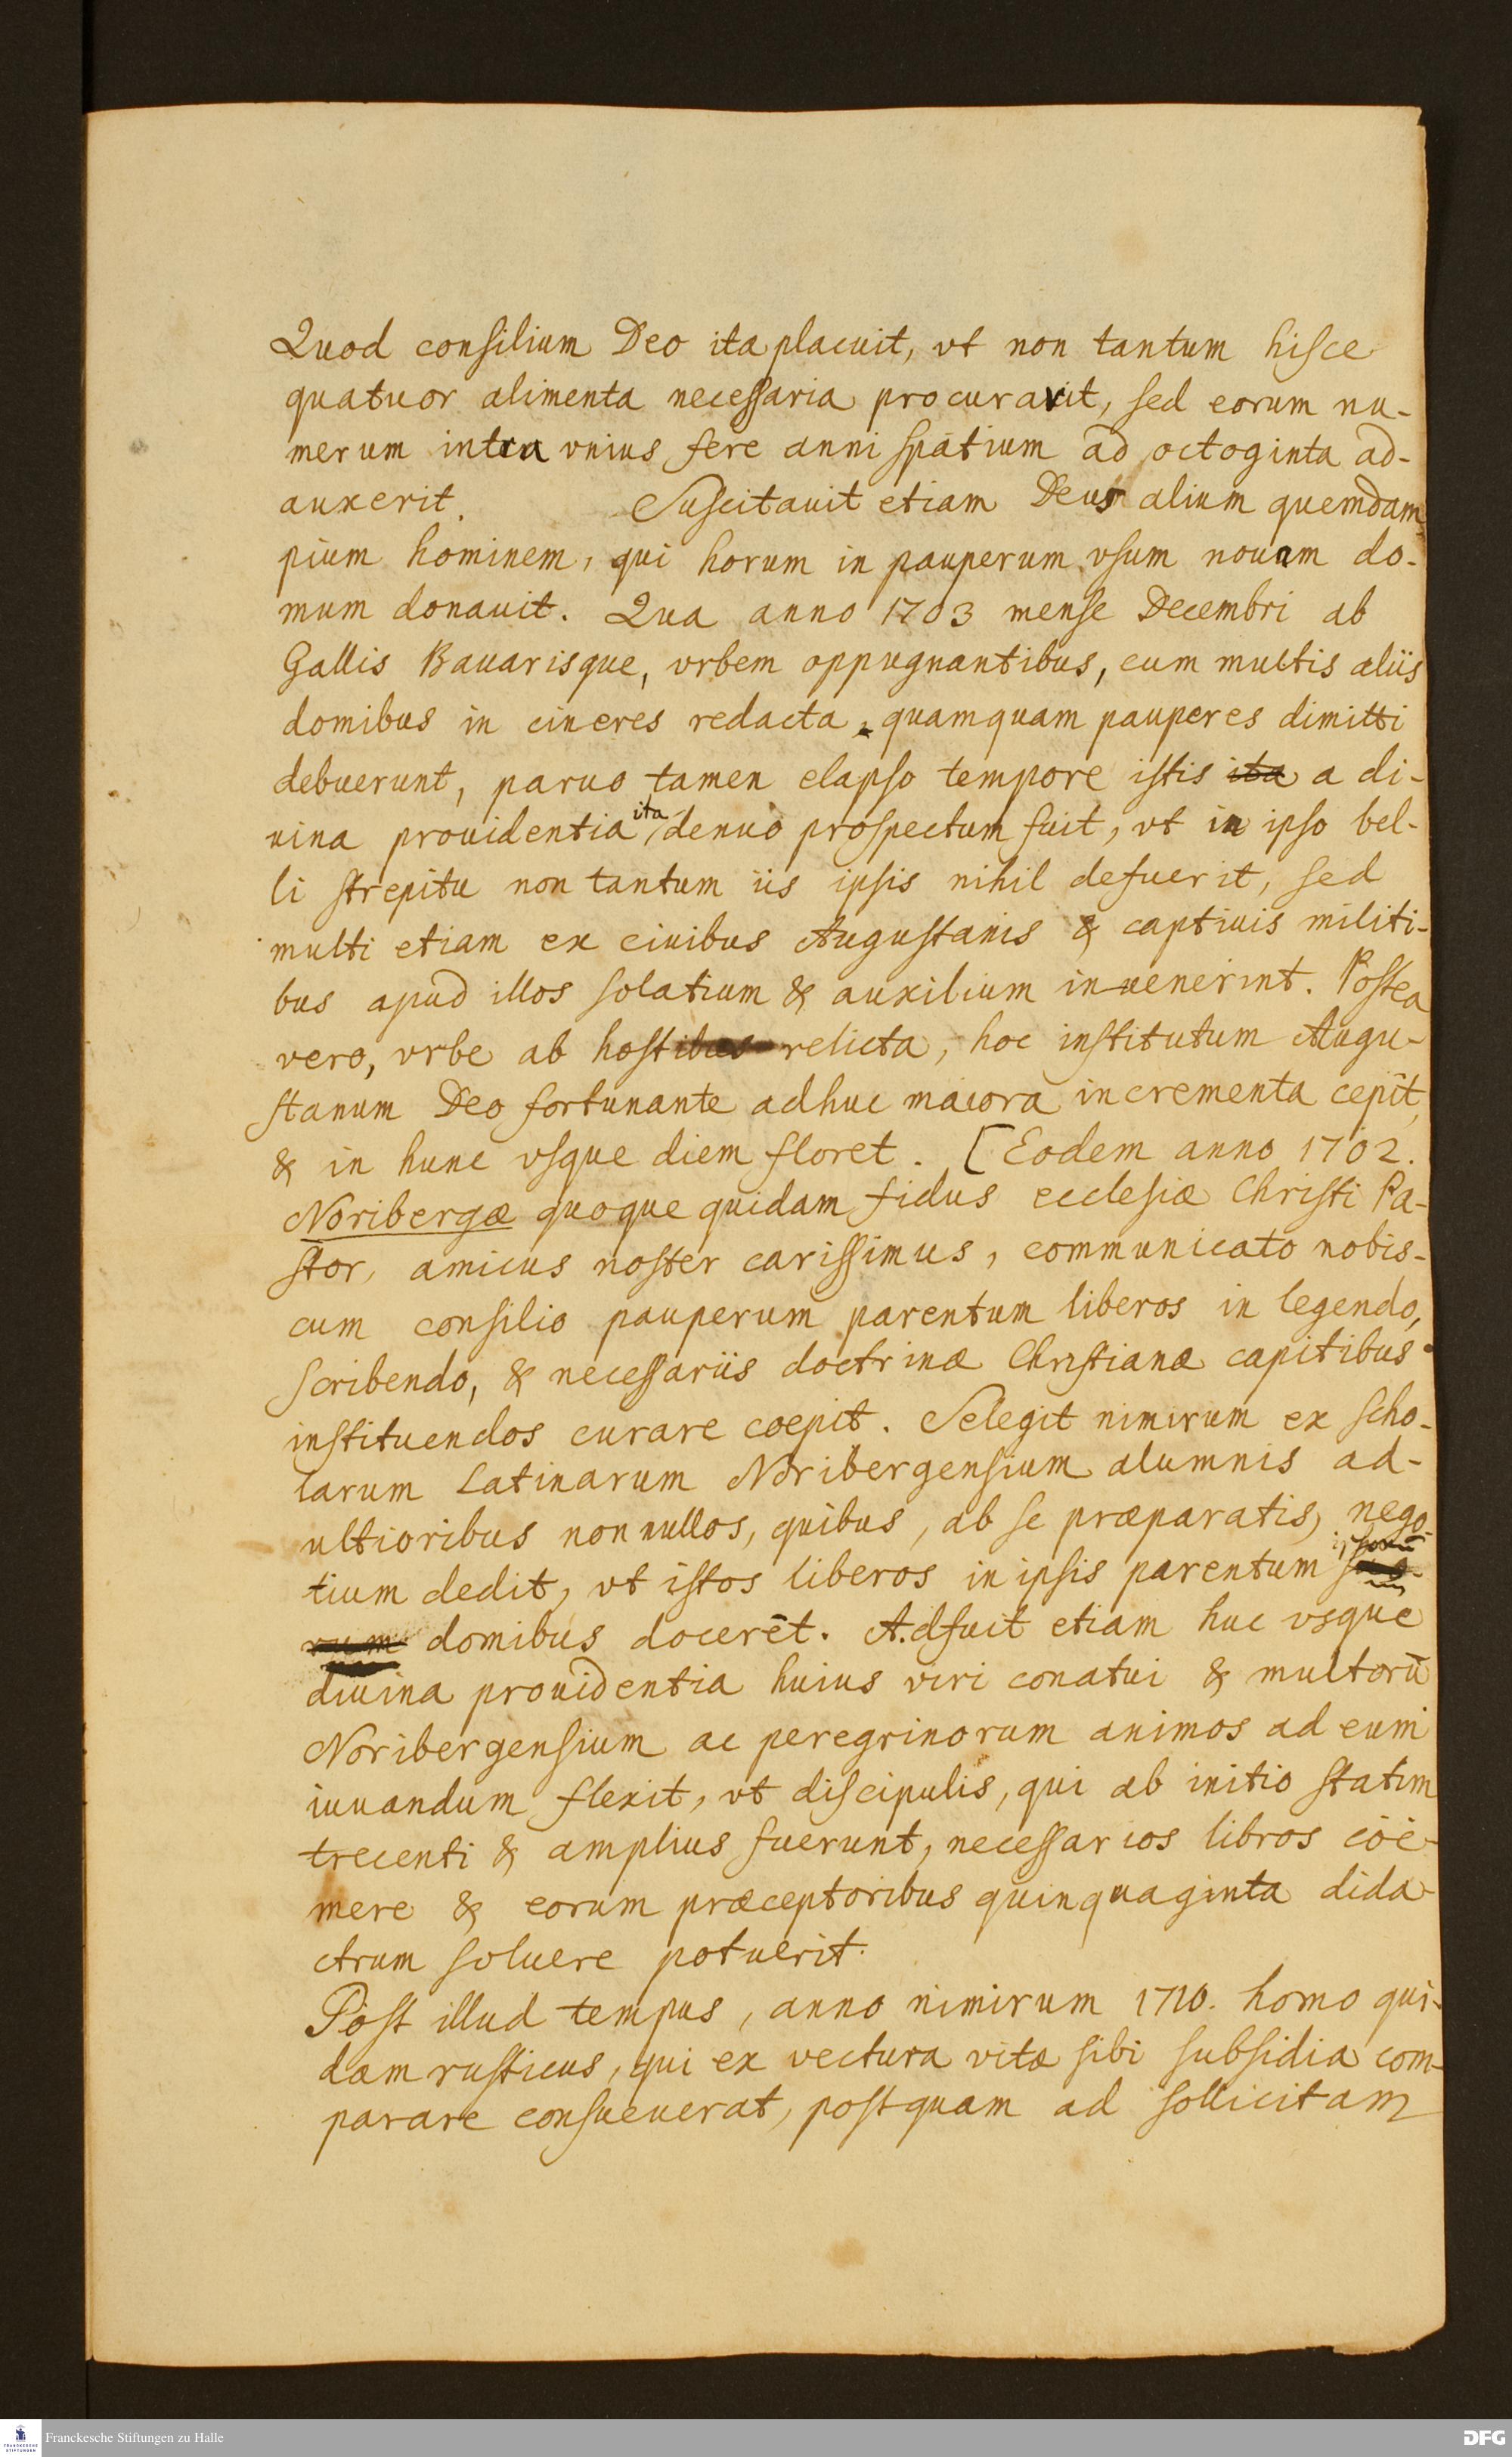 Quod consilium Deo ita placuit, vt non tantum hisce
quatuor alimenta necessaria procuravit, sed eorum nu-
merum intra vnius fere anni spatium ad octoginta ad-
auxerit. Suscitauit etiam Deus alium quemdam
pium hominem, qui horum in pauperum vsum nouam do-
mum donauit. Qua anno 1703 mense Decembri ab
Gallis Bauarisque, vrbem oppugnantibus, cum multis aliis
domibus in cineres redacta, quamquam pauperes dimitti
debuerunt, paruo tamen elapso tempore istis ita a di-
uina prouidentia ita denuo prospectum fuit, vt in ipso bel-
li strepitu non tantum iis ipsis nihil defuerit, sed
multi etiam ex ciuibus Augustanis & captiuis militi-
bus apud illos solatium & auxilium inuenerint. Postea
vero, vrbe ab hostibus relicta, hoc institutum Augu-
stanum Deo fortunante adhuc maiora incrementa cepit,
& in hunc vsque diem floret. [Eodem anno 1702.
Noribergæ quoque quidam fidus ecclesiæ Christi Pa-
stor, amicus noster carissimus, communicato nobis-
cum consilio pauperum parentum liberos in legendo,
scribendo, & necessariis doctrinæ Christianæ capitibus
instituendos curare coepit. Selegit nimirum ex scho-
larum Latinarum Noribergensium alumnis ad-
ultioribus nonnullos, quibus, ab se præparatis, nego-
tium dedit, vt istos liberos in ipsis parentum ipsorū suo-
rum domibus docerēt. Adfuit etiam huc vsque
diuina prouidentia huius viri conatui & multorū
Noribergensium ac peregrinorum animos ad eum
iuuandum flexit, vt discipulis, qui ab initio statim
trecenti & amplius fuerunt, necessarios libros coë-
mere & eorum præceptoribus quinquaginta dida-
ctrum soluere potuerit.
Post illud tempus, anno nimirum 1710. homo qui-
dam rusticus, qui ex vectura vitæ sibi subsidia com-
parare consueuerat, postquam ad sollicitam
Franckesche Stiftungen zu Halle
DFG